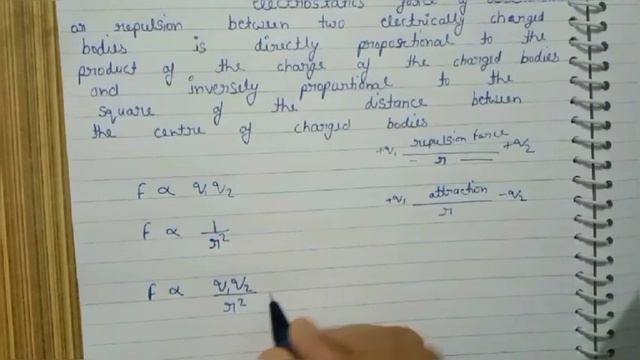 electrostatics force of
or repulsion between two electrically charged
bodies is directly proportional to the
product of the charge of the charged bodies
and inversely proportional to the
square of the distance between
the centre of charged bodies
+q₁ repulsion force +q₂
r
+q₁ attraction -q₂
r
F ∝ q₁q₂
F ∝ 1/r²
F ∝ q₁q₂/r²